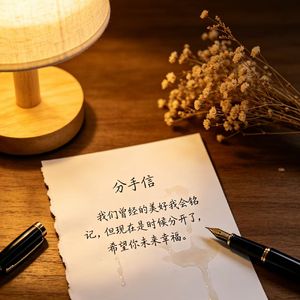 分手信
我们曾经的美好我会铭
记，但现在是时候分开了，
希望你未来幸福。